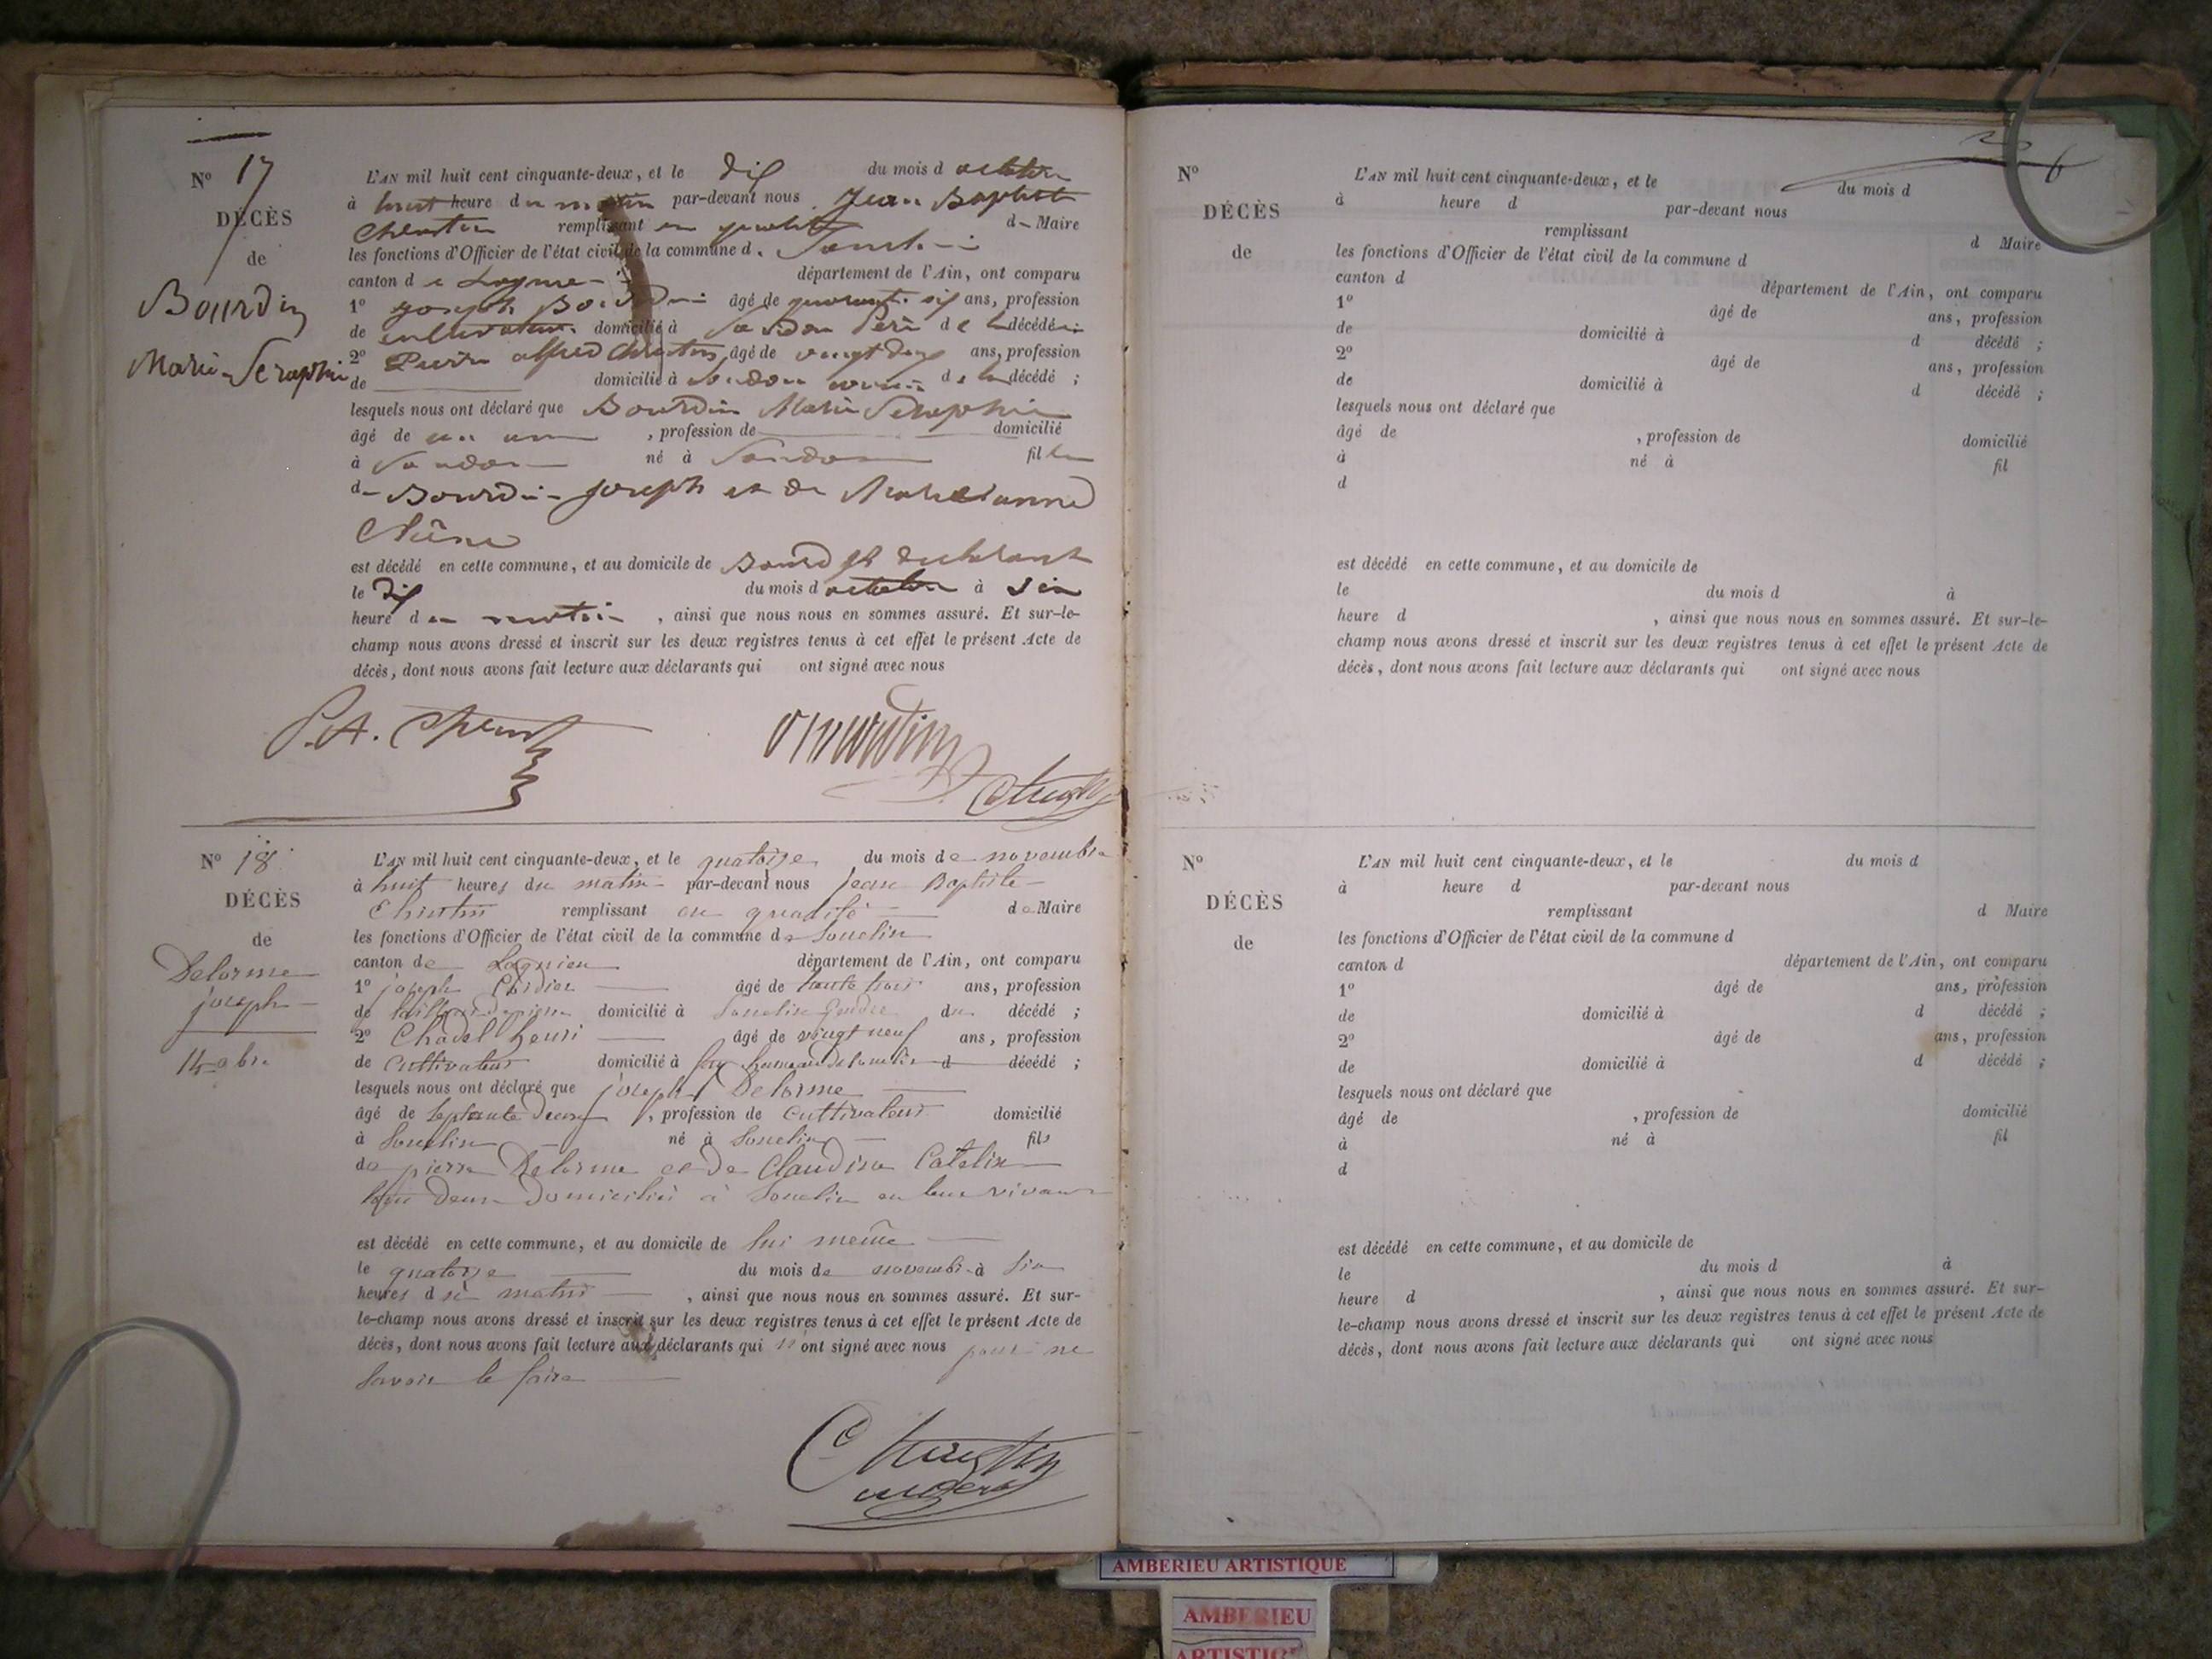 N° 17
DÉCÈS
de
Bourdin
Marie Seraphie
L'AN mil huit cent cinquante-deux, et le dix du mois d octobre
à huit heure du matin par-devant nous Jean Baptiste
Chrestin remplissant en qualité de Maire
les fonctions d'Officier de l'état civil de la commune d
canton de Lagnieu département de l'Ain, ont comparu
1° Joseph Bourdin âgé de quarante six ans, profession
de cultivateur domicilié à Soudon Père de la décédée
2° Pierre alfred Chrestin, âgé de vingt deux ans, profession
de domicilié à Soudon voisin de la décédé ;
lesquels nous ont déclaré que Bourdin Marie Seraphie
âgé de un an , profession de domicilié
à Soudon né à Soudon fille
de Bourdin Joseph et de Marianne
est décédé en cette commune, et au domicile de
le dix du mois d octobre à six
heure du matin , ainsi que nous nous en sommes assuré. Et sur-le-
champ nous avons dressé et inscrit sur les deux registres tenus à cet effet le présent Acte de
décès, dont nous avons fait lecture aux déclarants qui ont signé avec nous
P. A. Chrestin
N° 18
DÉCÈS
de
Delorme
joseph
14 9bre
L'AN mil huit cent cinquante-deux, et le quatorze du mois de novembre
à huit heures du matin par-devant nous Jean Baptiste
Chrestin remplissant en qualité de Maire
les fonctions d'Officier de l'état civil de la commune de Souclin
canton de Lagnieu département de l'Ain, ont comparu
1° joseph âgé de trente trois ans, profession
de tailleur de pierre domicilié à Souclin Gendre du décédé ;
2° Chadel henri âgé de vingt neuf ans, profession
de Cultivateur domicilié à hameau de Souclin d décédé ;
lesquels nous ont déclaré que joseph Delorme
âgé de Septante , profession de Cultivateur domicilié
à Souclin né à Souclin fils
de pierre Delorme et de Claudine Catelin
tous Deux Domiciliés à Souclin en leur vivant
est décédé en cette commune, et au domicile de lui même
le quatorze du mois de novembre à six
heures du matin , ainsi que nous nous en sommes assuré. Et sur-
le-champ nous avons dressé et inscrit sur les deux registres tenus à cet effet le présent Acte de
décès, dont nous avons fait lecture aux déclarants qui n'ont signé avec nous pour ne
Savoir le faire
Chrestin
maire
N°
DÉCÈS
de
L'AN mil huit cent cinquante-deux, et le du mois d
à heure d par-devant nous
remplissant d Maire
les fonctions d'Officier de l'état civil de la commune d
canton d département de l'Ain, ont comparu
1° âgé de ans, profession
de domicilié à d décédé ;
2° âgé de ans, profession
de domicilié à d décédé ;
lesquels nous ont déclaré que
âgé de , profession de domicilié
à né à fil
d
est décédé en cette commune, et au domicile de
le du mois d à
heure d , ainsi que nous nous en sommes assuré. Et sur-le-
champ nous avons dressé et inscrit sur les deux registres tenus à cet effet le présent Acte de
décès, dont nous avons fait lecture aux déclarants qui ont signé avec nous
N°
DÉCÈS
de
L'AN mil huit cent cinquante-deux, et le du mois d
à heure d par-devant nous
remplissant d Maire
les fonctions d'Officier de l'état civil de la commune d
canton d département de l'Ain, ont comparu
1° âgé de ans, profession
de domicilié à d décédé ;
2° âgé de ans, profession
de domicilié à d décédé ;
lesquels nous ont déclaré que
âgé de , profession de domicilié
à né à fil
d
est décédé en cette commune, et au domicile de
le du mois d à
heure d , ainsi que nous nous en sommes assuré. Et sur-
le-champ nous avons dressé et inscrit sur les deux registres tenus à cet effet le présent Acte de
décès, dont nous avons fait lecture aux déclarants qui ont signé avec nous
AMBERIEU ARTISTIQUE
AMBERIEU
ARTISTIQUE